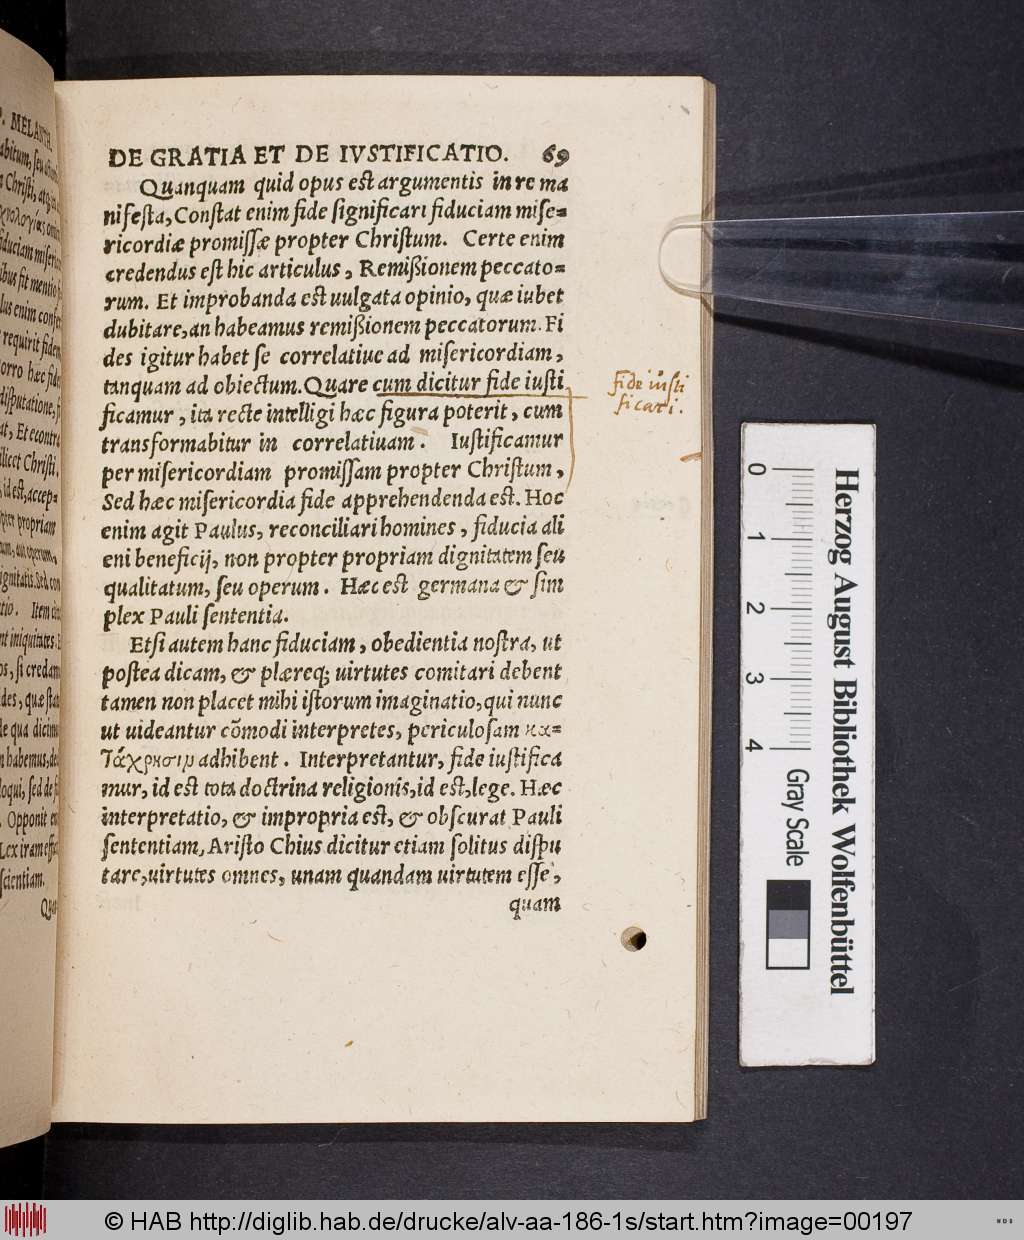 P. MELANTH.
DE GRATIA ET DE IVSTIFICATIO. 69
Quanquam quid opus est argumentis in re ma
nifesta, Constat enim fide significari fiduciam mise=
ricordiæ promissæ propter Christum. Certe enim
credendus est hic articulus, Remißionem peccato=
rum. Et improbanda est uulgata opinio, quæ iubet
dubitare, an habeamus remißionem peccatorum. Fi
des igitur habet se correlatiue ad misericordiam,
tanquam ad obiectum. Quare cum dicitur fide iusti
ficamur, ita recte intelligi hæc figura poterit, cum
transformabitur in correlatiuam. Iustificamur
per misericordiam promissam propter Christum,
Sed hæc misericordia fide apprehendenda est. Hoc
enim agit Paulus, reconciliari homines, fiducia ali
eni beneficij, non propter propriam dignitatem seu
qualitatum, seu operum. Hæc est germana & sim
plex Pauli sententia.
Etsi autem hanc fiduciam, obedientia nostra, ut
postea dicam, & plæreq; uirtutes comitari debent
tamen non placet mihi istorum imaginatio, qui nunc
ut uideantur cõmodi interpretes, periculosam κα=
τάχρησιν adhibent. Interpretantur, fide iustifica
mur, id est tota doctrina religionis, id est, lege. Hæc
interpretatio, & impropria est, & obscurat Pauli
sententiam, Aristo Chius dicitur etiam solitus dispu
tare, uirtutes omnes, unam quandam uirtutem esse,
quam
fide iusti
ficari.
0 1 2 3 4
Herzog August Bibliothek Wolfenbüttel
Gray Scale
© HAB http://diglib.hab.de/drucke/alv-aa-186-1s/start.htm?image=00197